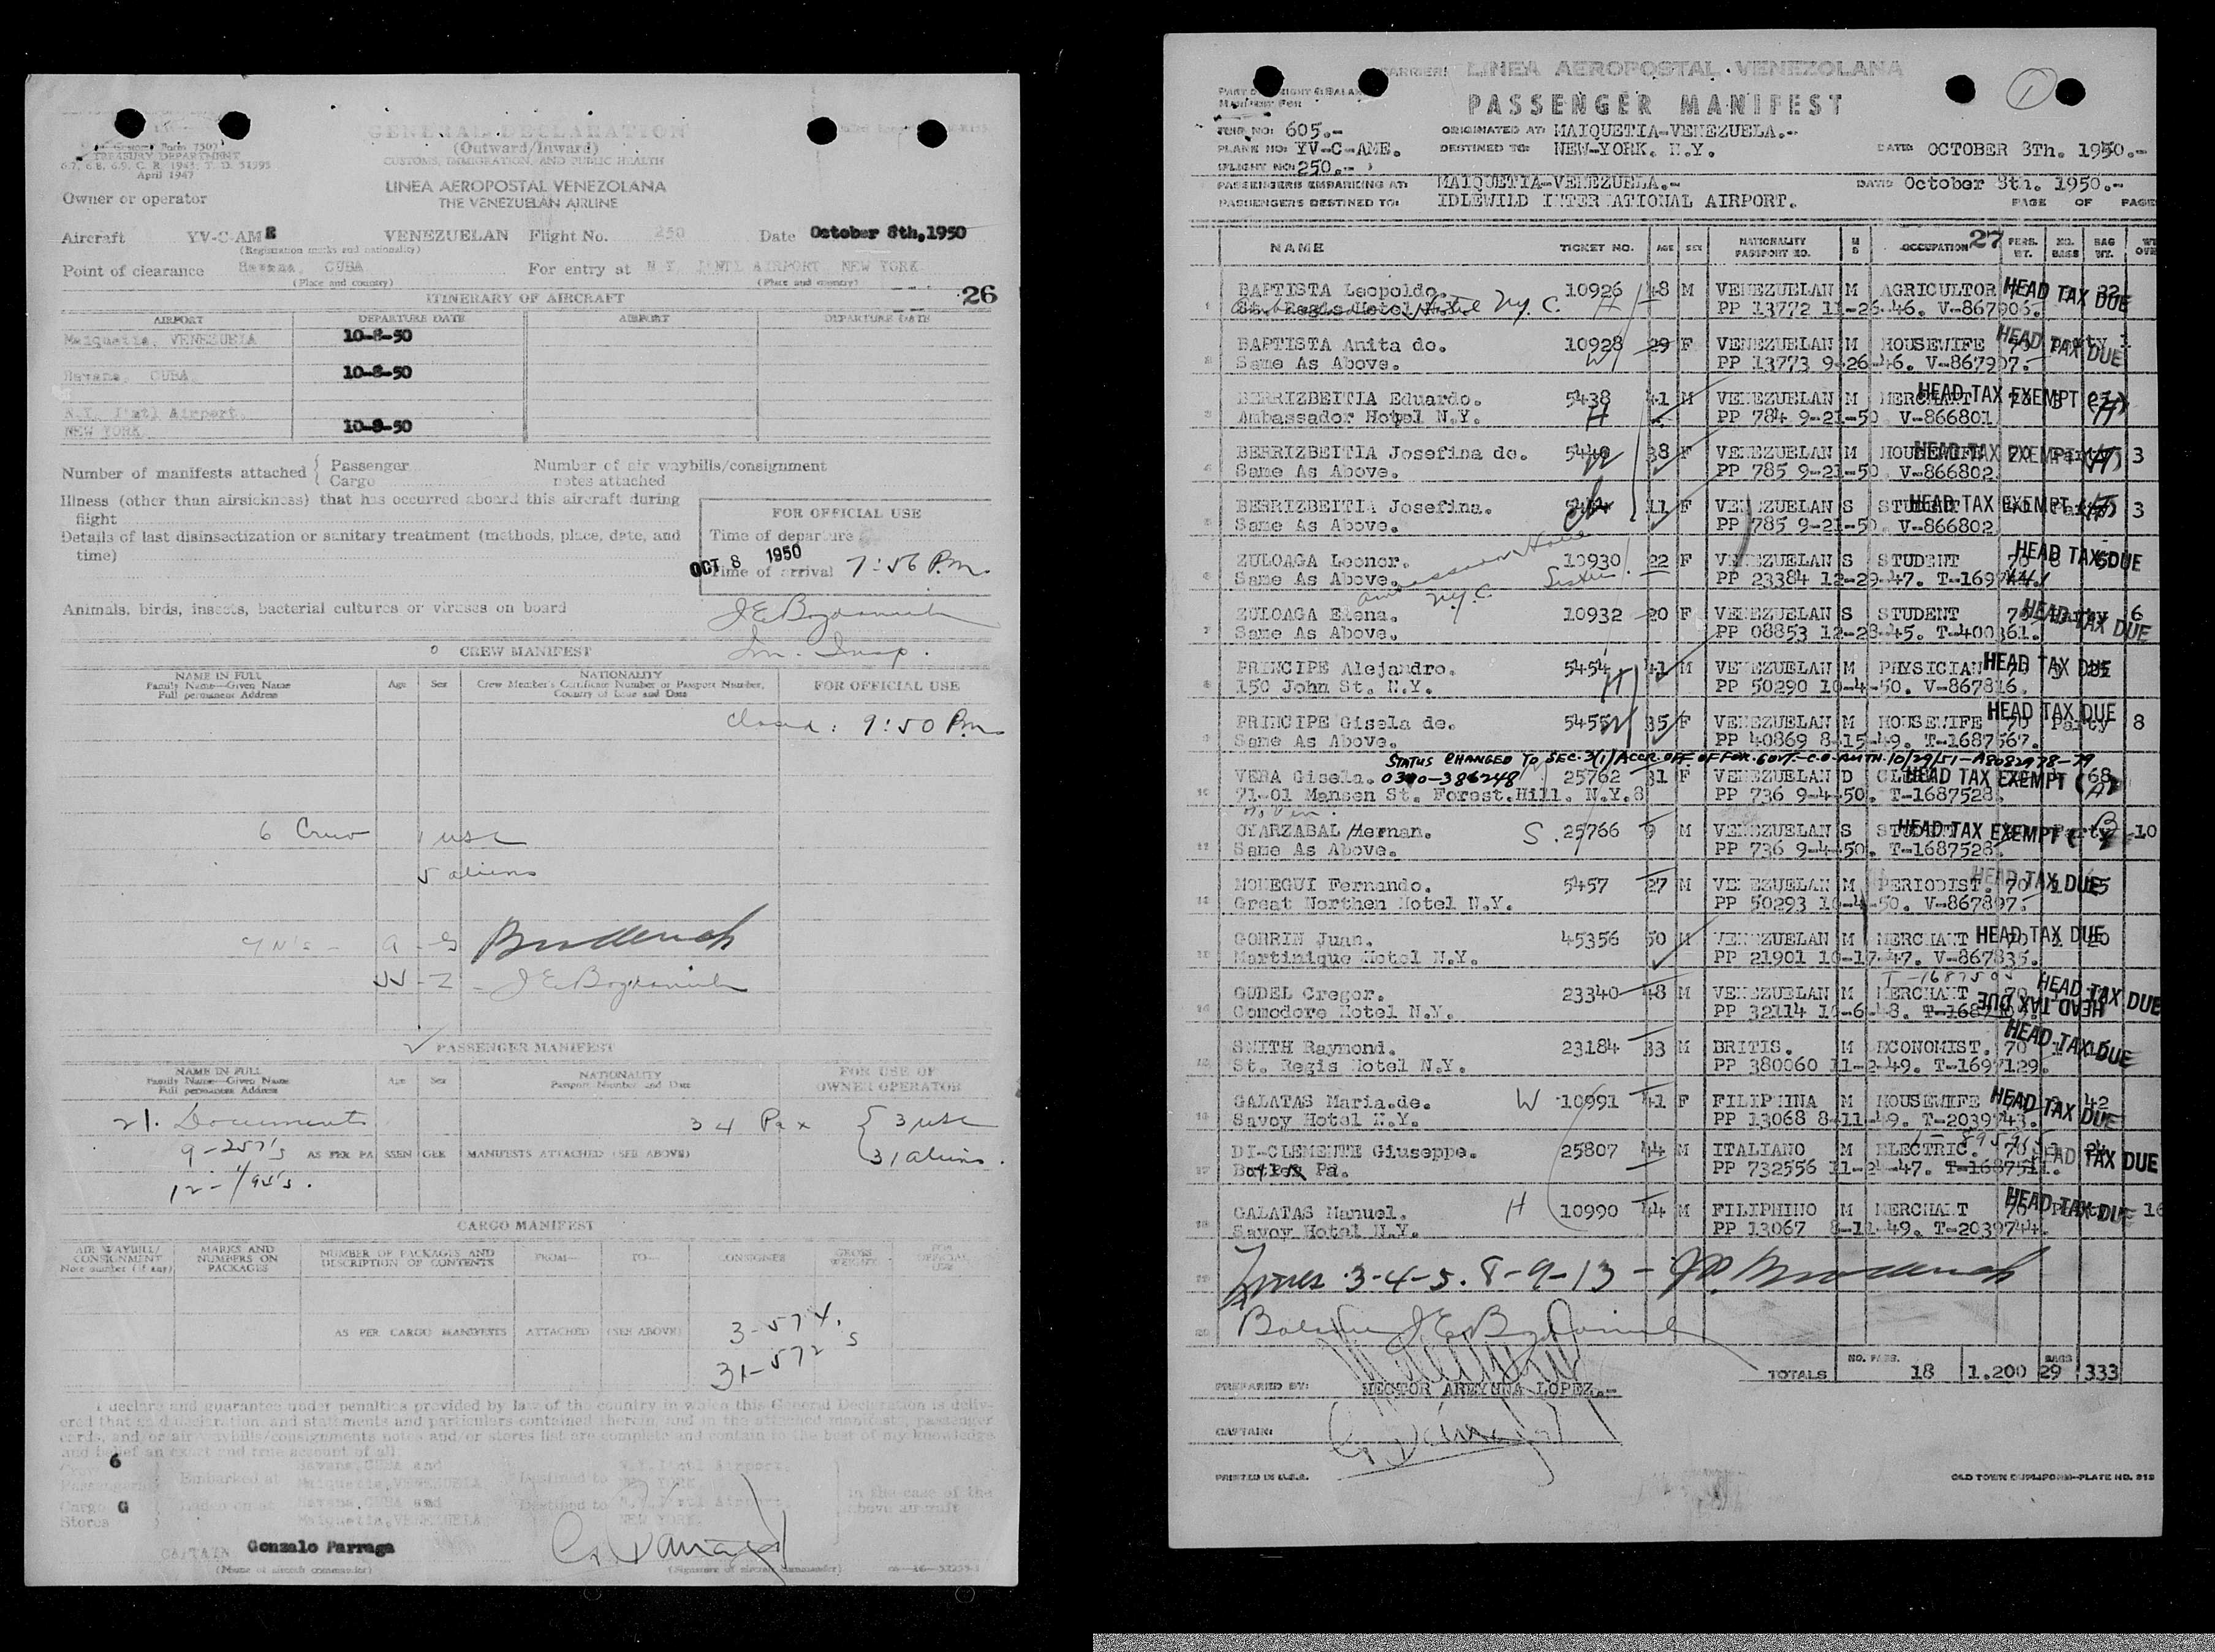 Customs Form 7507
TREASURY DEPARTMENT
April 1947
GENERAL DECLARATION
(Outward/Inward)
CUSTOMS, IMMIGRATION, AND PUBLIC HEALTH
LINEA AEROPOSTAL VENEZOLANA
THE VENEZUELAN AIRLINE
Owner or operator
Aircraft YV-C-AME VENEZUELAN Flight No. 250 Date October 8th,1950
(Registration marks and nationality)
Point of clearance Havana, CUBA For entry at N.Y. INTL AIRPORT NEW YORK
(Place and country) (Place and country)
ITINERARY OF AIRCRAFT 26
AIRPORT DEPARTURE DATE AIRPORT DEPARTURE DATE
Maiquetia, VENEZUELA 10-8-50
Havana, CUBA 10-8-50
N.Y. Int'l Airport,
NEW YORK 10-8-50
Number of manifests attached { Passenger Number of air waybills/consignment
Cargo notes attached
Illness (other than airsickness) that has occurred aboard this aircraft during
flight
FOR OFFICIAL USE
Details of last disinsectization or sanitary treatment (methods, place, date, and
time)
Time of departure
OCT 8 1950
Time of arrival 7:56 P.m.
Animals, birds, insects, bacterial cultures or viruses on board
J E Bogdanich
Im. Insp.
CREW MANIFEST
NAME IN FULL
Family Name—Given Name
Full permanent Address
Age Sex
NATIONALITY
Crew Member's Certificate Number or Passport Number,
Country of Issue and Date
FOR OFFICIAL USE
Closed: 9:50 P.m.
6 Crew 1 usc
5 aliens
J E Bogdanich
PASSENGER MANIFEST
NAME IN FULL
Family Name—Given Name
Full permanent Address
Age Sex
NATIONALITY
Passport Number and Date
FOR USE OF
OWNER OPERATOR
21. Documents 34 Pax { 3 usc
9-257's AS PER PASSENGER MANIFESTS ATTACHED (SEE ABOVE) 31 aliens.
CARGO MANIFEST
AIR WAYBILL/
CONSIGNMENT
Note number (if any)
MARKS AND
NUMBERS ON
PACKAGES
NUMBER OF PACKAGES AND
DESCRIPTION OF CONTENTS
FROM— TO— CONSIGNEE
GROSS
WEIGHT
FOR
OFFICIAL
USE
AS PER CARGO MANIFESTS ATTACHED (SEE ABOVE)
3-574.
31-572's
I declare and guarantee under penalties provided by law of the country in which this General Declaration is deliv-
ered that said declaration and statements and particulars contained therein, and in the attached manifests, passenger
cards, and/or air waybills/consignments notes and/or stores list are complete and contain to the best of my knowledge
and belief an exact and true account of all:
6
Passengers Embarked at Havana,CUBA and Maiquetia,VENEZUELA Destined to N.Y.Int'l Airport, NEW YORK
Cargo G Laden on at Havana,CUBA and Maiquetia,VENEZUELA Destined to N.Y.Int'l Airport, NEW YORK
Stores
in the case of the
above aircraft
CAPTAIN Gonzalo Parraga
(Name of aircraft commander) (Signature of aircraft commander)
CARRIER: LINEA AEROPOSTAL VENEZOLANA
PASSENGER MANIFEST
1
TRIP NO: 605.- ORIGINATED AT: MAIQUETIA-VENEZUELA.-
PLANE NO: YV-C-AME. DESTINED TO: NEW-YORK. N.Y. DATE: OCTOBER 8Th. 1950.-
(FLIGHT NO: 250.- )
PASSENGERS EMBARKING AT: MAIQUETIA-VENEZUELA.- DATE: October 8th. 1950.-
PASSENGERS DESTINED TO: IDLEWILD INTERNATIONAL AIRPORT. PAGE OF PAGES
NAME TICKET NO. AGE SEX NATIONALITY PASSPORT NO. M S OCCUPATION 27 PERS. WT. NO. BAGS BAG WT.
1 BAPTISTA Leopoldo. 10926 48 M VENEZUELAN M AGRICULTOR HEAD TAX DUE
St. Regis Hotel N.Y. N.Y.C. PP 13772 11-26-46. V-867906.
2 BAPTISTA Anita de. 10928 29 F VENEZUELAN M HOUSEWIFE HEAD TAX DUE 1
Same As Above. W PP 13773 9-26-46. V-867907.
3 BERRIZBEITIA Eduardo. 5438 41 M VENEZUELAN M MERCHANT HEAD TAX EXEMPT
Ambassador Hotel N.Y. H PP 784 9-21-50 V-866801
4 BERRIZBEITIA Josefina de. 5440 38 F VENEZUELAN M HOUSEWIFE HEAD TAX EXEMPT 3
Same As Above. PP 785 9-21-50 V-866802
5 BERRIZBEITIA Josefina. 11 F VENEZUELAN S STUDENT HEAD TAX EXEMPT 3
Same As Above. PP 785 9-21-50 V-866802
6 ZULOAGA Leonor. 10930 22 F VENEZUELAN S STUDENT 70 HEAD TAX DUE
Same As Above. Sister PP 23384 12-29-47.
N.Y.C.
7 ZULOAGA Elena. 10932 20 F VENEZUELAN S STUDENT 70 HEAD TAX DUE 6
Same As Above. PP 08853 12-28-45. T-400361.
8 PRINCIPE Alejandro. 5454 41 M VENEZUELAN M PHYSICIAN HEAD TAX DUE
150 John St. N.Y. H PP 50290 10-4-50. V-867816.
9 PRINCIPE Gisela de. 5455 W 35 F VENEZUELAN M HOUSEWIFE 70 Party HEAD TAX DUE 8
Same As Above. PP 40869 8-15-49. T-1687567.
STATUS CHANGED TO SEC. 3(1) ACCR. OFF. OF FOR. GOVT.-C.O. AUTH. 10/29/51-A8082978-79
10 VERA Gisela. 0300-386248 25762 31 F VENEZUELAN D HEAD TAX EXEMPT 68
71-01 Mansen St. Forest.Hill. N.Y.8 PP 736 9-4-50. T-1687528.
11 OYARZABAL Hernan. S. 25766 9 M VENEZUELAN S STUDENT HEAD TAX EXEMPT 10
Same As Above. PP 736 9-4-50. T-1687528.
12 MONEGUI Fernando. 5457 27 M VENEZUELAN M PERIODIST. 70 HEAD TAX DUE
Great Northen Hotel N.Y. PP 50293 10-4-50. V-867807.
13 GORRIN Juan. 45356 50 M VENEZUELAN M MERCHANT HEAD TAX DUE
Martinique Hotel N.Y. PP 21901 10-17-47. V-867835.
14 GUDEL Gregor. 23340 48 M VENEZUELAN M MERCHANT 70 HEAD TAX DUE
Comodore Hotel N.Y. HEAD TAX DUE
15 SMITH Raymond. 23184 33 M BRITIS. M ECONOMIST. 70 HEAD TAX DUE
St. Regis Hotel N.Y. PP 380060 11-2-49. T-1697129.
16 GALATAS Maria.de. W 10991 41 F FILIPHINA M HOUSEWIFE HEAD TAX DUE 42
Savoy Hotel N.Y. PP 13068 8-11-49. T-2039743.
17 DI-CLEMENTE Giuseppe. 25807 44 M ITALIANO M ELECTRIC. 70 HEAD TAX DUE
Pa. PP 732556
18 GALATAS Manuel. H 10990 44 M FILIPHINO M MERCHANT HEAD TAX DUE 16
Savoy Hotel N.Y. PP 13067 8-11-49. T-2039744.
19 Lines 3-4-5. 8-9-13 -
20 Balance J E Bogdanich
TOTALS NO. PASS. 18 1.200 BAGS 29 333
PREPARED BY: HECTOR AREYUNA LOPEZ.-
CAPTAIN:
PRINTED IN U.S.A. OLD TOWN DUPLIFORM—PLATE NO. 818